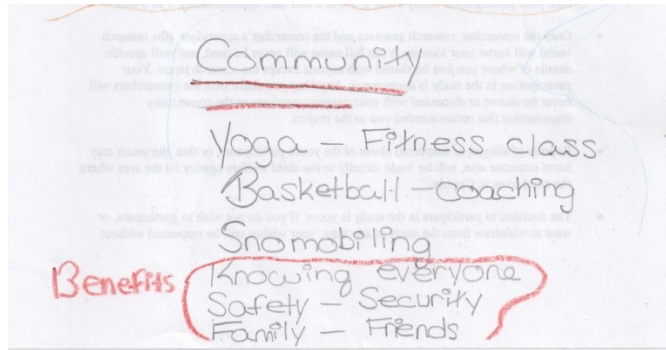 Community
Yoga – Fitness class
Basketball – coaching
Snomobiling
Benefits
Knowing everyone
Safety – Security
Family – Friends